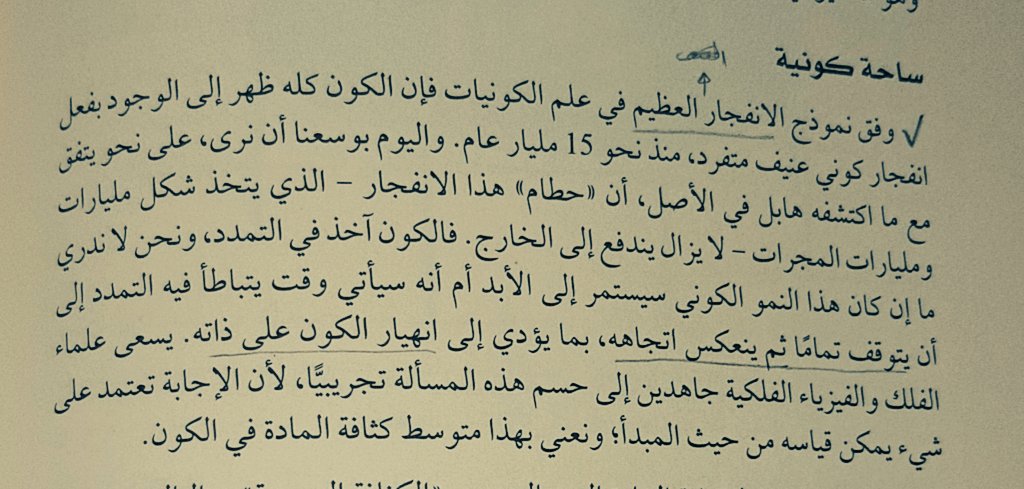 ساحة كونية
وفق نموذج الانفجار العظيم في علم الكونيات فإن الكون كله ظهر إلى الوجود بفعل
انفجار كوني عنيف متفرد، منذ نحو 15 مليار عام. واليوم بوسعنا أن نرى، على نحو يتفق
مع ما اكتشفه هابل في الأصل، أن «حطام» هذا الانفجار – الذي يتخذ شكل مليارات
ومليارات المجرات – لا يزال يندفع إلى الخارج. فالكون آخذ في التمدد، ونحن لا ندري
ما إن كان هذا النمو الكوني سيستمر إلى الأبد أم أنه سيأتي وقت يتباطأ فيه التمدد إلى
أن يتوقف تمامًا ثم ينعكس اتجاهه، بما يؤدي إلى انهيار الكون على ذاته. يسعى علماء
الفلك والفيزياء الفلكية جاهدين إلى حسم هذه المسألة تجريبيًّا، لأن الإجابة تعتمد على
شيء يمكن قياسه من حيث المبدأ؛ ونعني بهذا متوسط كثافة المادة في الكون.